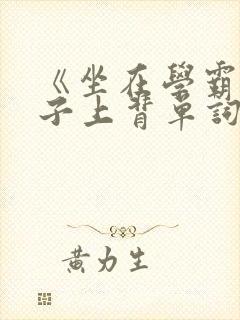 《坐在學霸
子上背單詞
黃力生